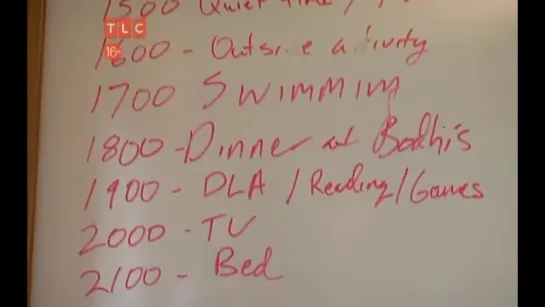 1500 Quiet Time /
TLC
16+
1600 - Outside activity
1700 Swimming
1800 - Dinner at Bodhi's
1900 - DLA / Reading / Games
2000 - TV
2100 - Bed